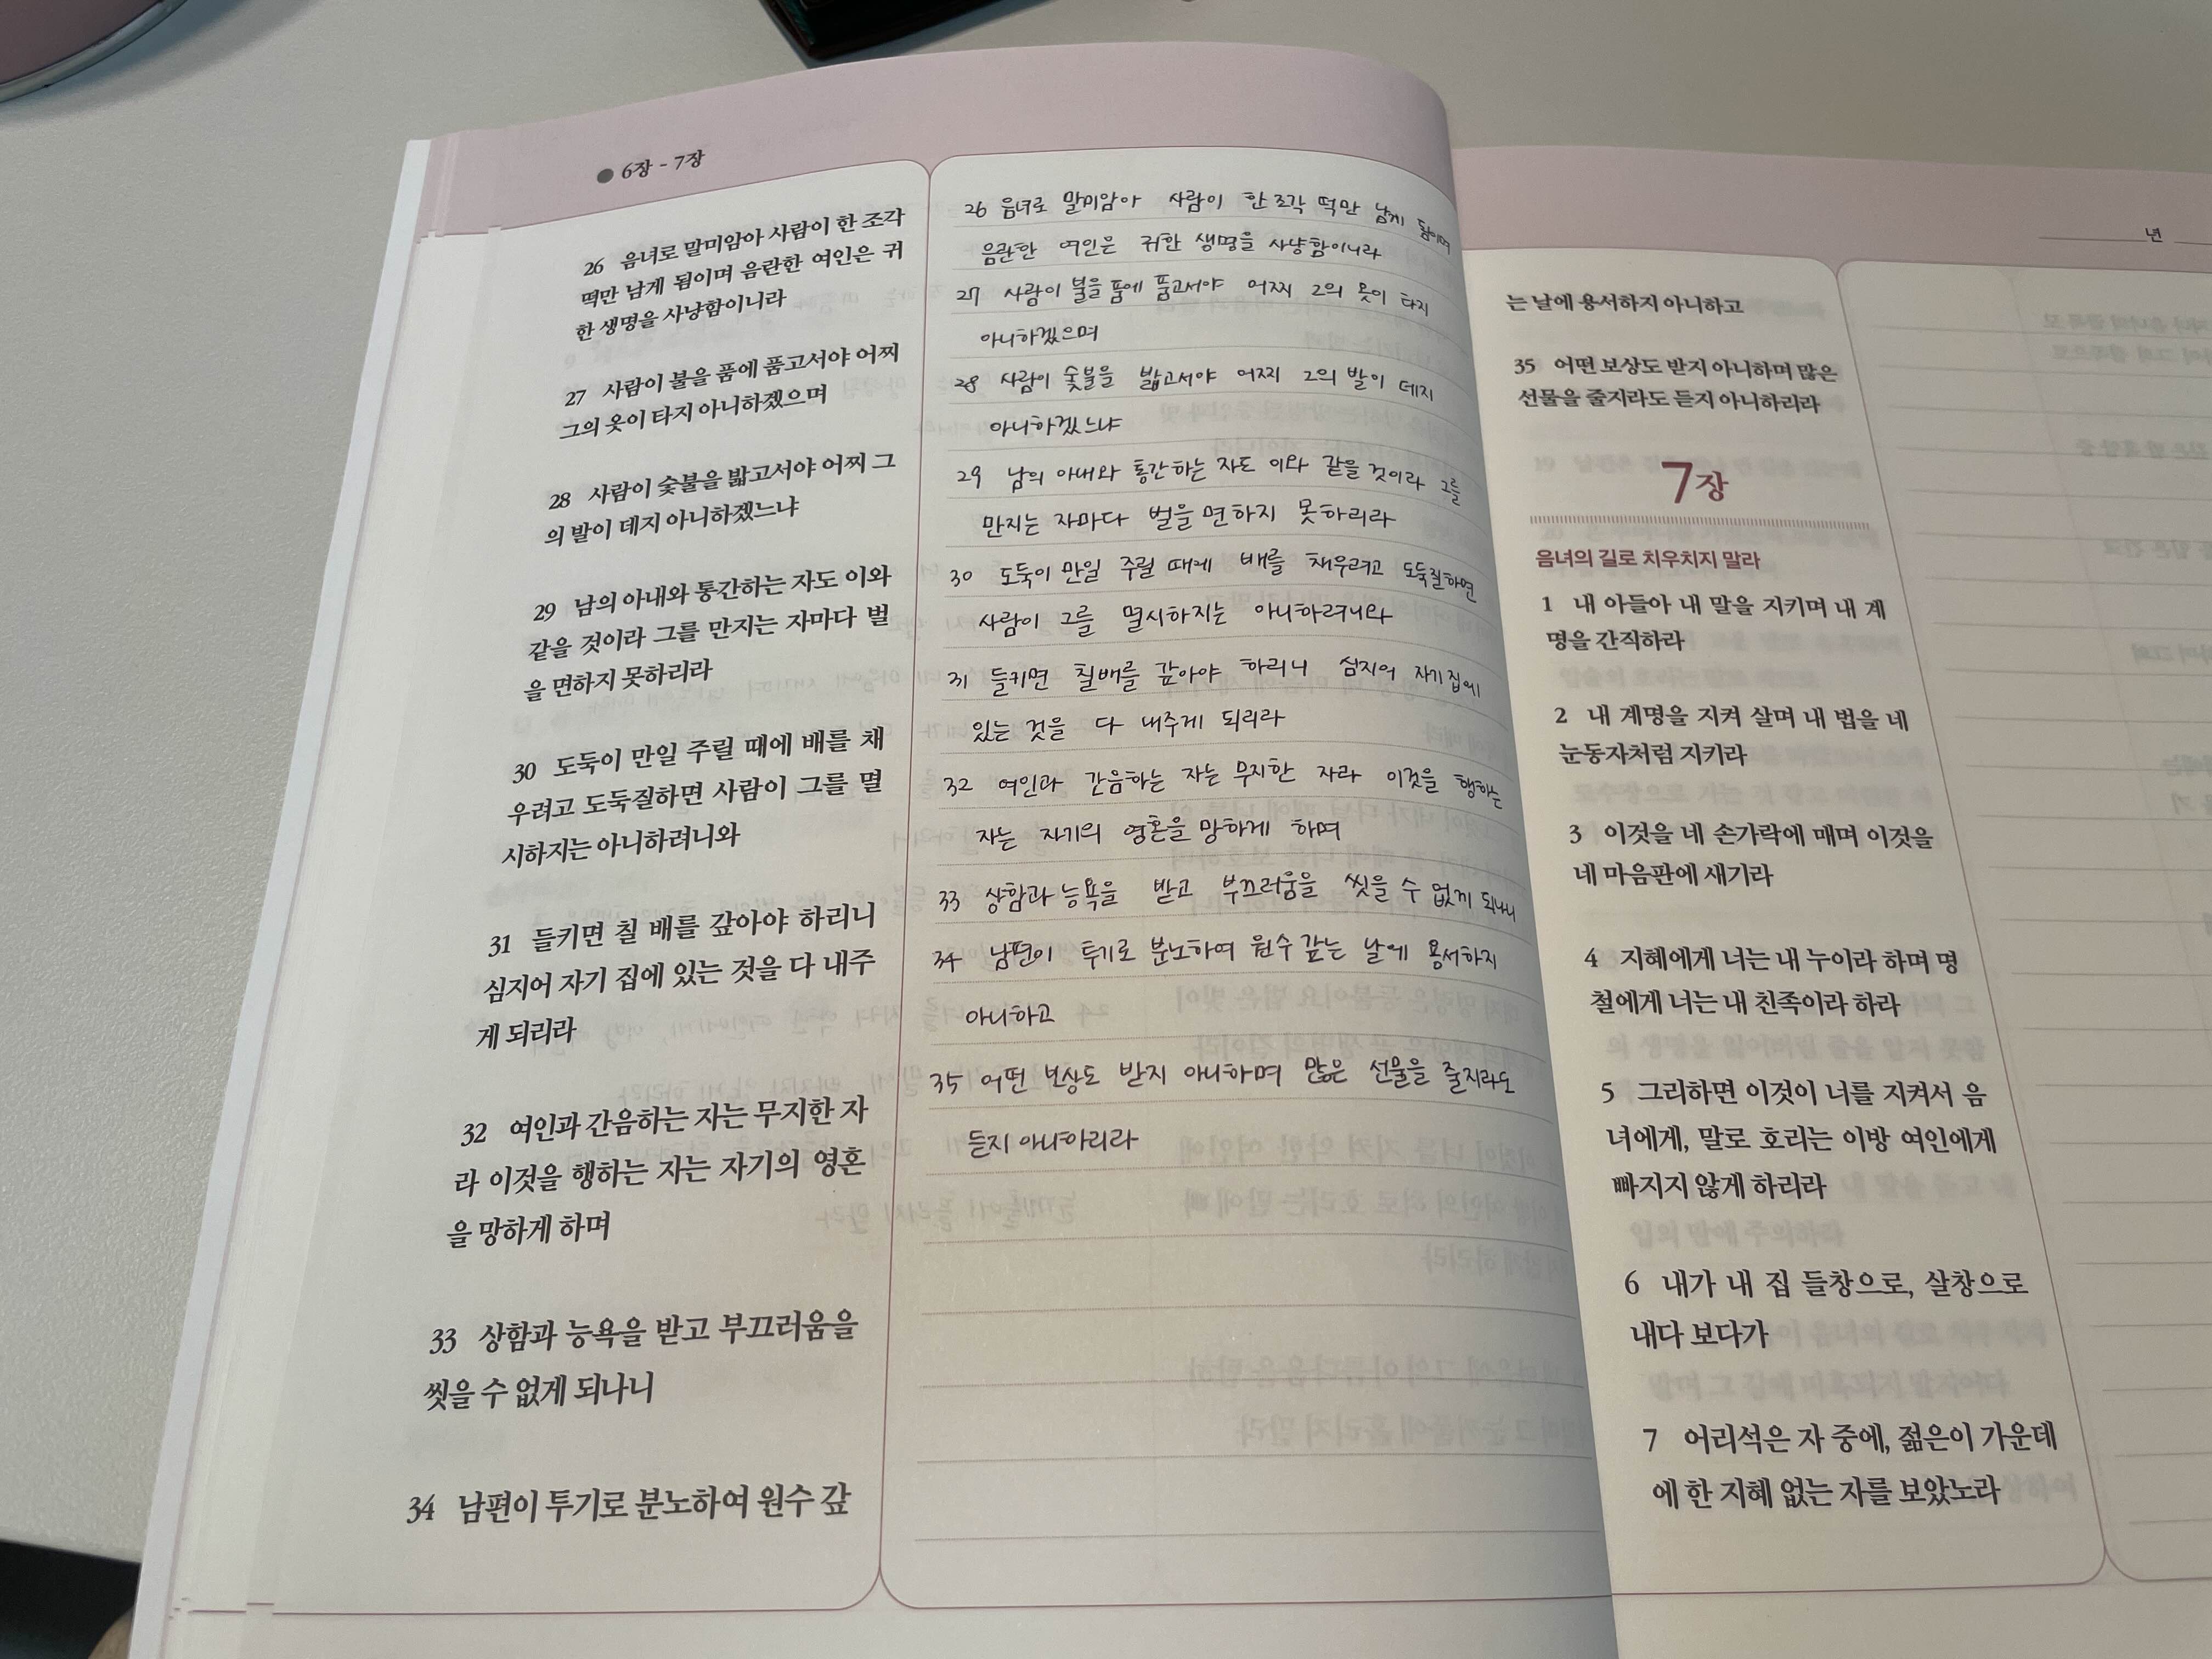 ● 6장 - 7장
26 음녀로 말미암아 사람이 한 조각
떡만 남게 됨이며 음란한 여인은 귀
한 생명을 사냥함이니라
27 사람이 불을 품에 품고서야 어찌
그의 옷이 타지 아니하겠으며
28 사람이 숯불을 밟고서야 어찌 그
의 발이 데지 아니하겠느냐
29 남의 아내와 통간하는 자도 이와
같을 것이라 그를 만지는 자마다 벌
을 면하지 못하리라
30 도둑이 만일 주릴 때에 배를 채
우려고 도둑질하면 사람이 그를 멸
시하지는 아니하려니와
31 들키면 칠 배를 갚아야 하리니
심지어 자기 집에 있는 것을 다 내주
게 되리라
32 여인과 간음하는 자는 무지한 자
라 이것을 행하는 자는 자기의 영혼
을 망하게 하며
33 상함과 능욕을 받고 부끄러움을
씻을 수 없게 되나니
34 남편이 투기로 분노하여 원수 갚
26 음녀로 말미암아 사람이 한 조각 떡만 남게 됨이며
음란한 여인은 귀한 생명을 사냥함이니라
27 사람이 불을 품에 품고서야 어찌 그의 옷이 타지
아니하겠으며
28 사람이 숯불을 밟고서야 어찌 그의 발이 데지
아니하겠느냐
29 남의 아내와 통간하는 자도 이와 같을 것이라 그를
만지는 자마다 벌을 면하지 못하리라
30 도둑이 만일 주릴 때에 배를 채우려고 도둑질하면
사람이 그를 멸시하지는 아니하려니와
31 들키면 칠배를 갚아야 하리니 심지어 자기 집에
있는 것을 다 내주게 되리라
32 여인과 간음하는 자는 무지한 자라 이것을 행하는
자는 자기의 영혼을 망하게 하며
33 상함과 능욕을 받고 부끄러움을 씻을 수 없게 되나니
34 남편이 투기로 분노하여 원수 갚는 날에 용서하지
아니하고
35 어떤 보상도 받지 아니하며 많은 선물을 줄지라도
듣지 아니하리라
년
는 날에 용서하지 아니하고
35 어떤 보상도 받지 아니하며 많은
선물을 줄지라도 듣지 아니하리라
7장
음녀의 길로 치우치지 말라
1 내 아들아 내 말을 지키며 내 계
명을 간직하라
2 내 계명을 지켜 살며 내 법을 네
눈동자처럼 지키라
3 이것을 네 손가락에 매며 이것을
네 마음판에 새기라
4 지혜에게 너는 내 누이라 하며 명
철에게 너는 내 친족이라 하라
5 그리하면 이것이 너를 지켜서 음
녀에게, 말로 호리는 이방 여인에게
빠지지 않게 하리라
6 내가 내 집 들창으로, 살창으로
내다 보다가
7 어리석은 자 중에, 젊은이 가운데
에 한 지혜 없는 자를 보았노라